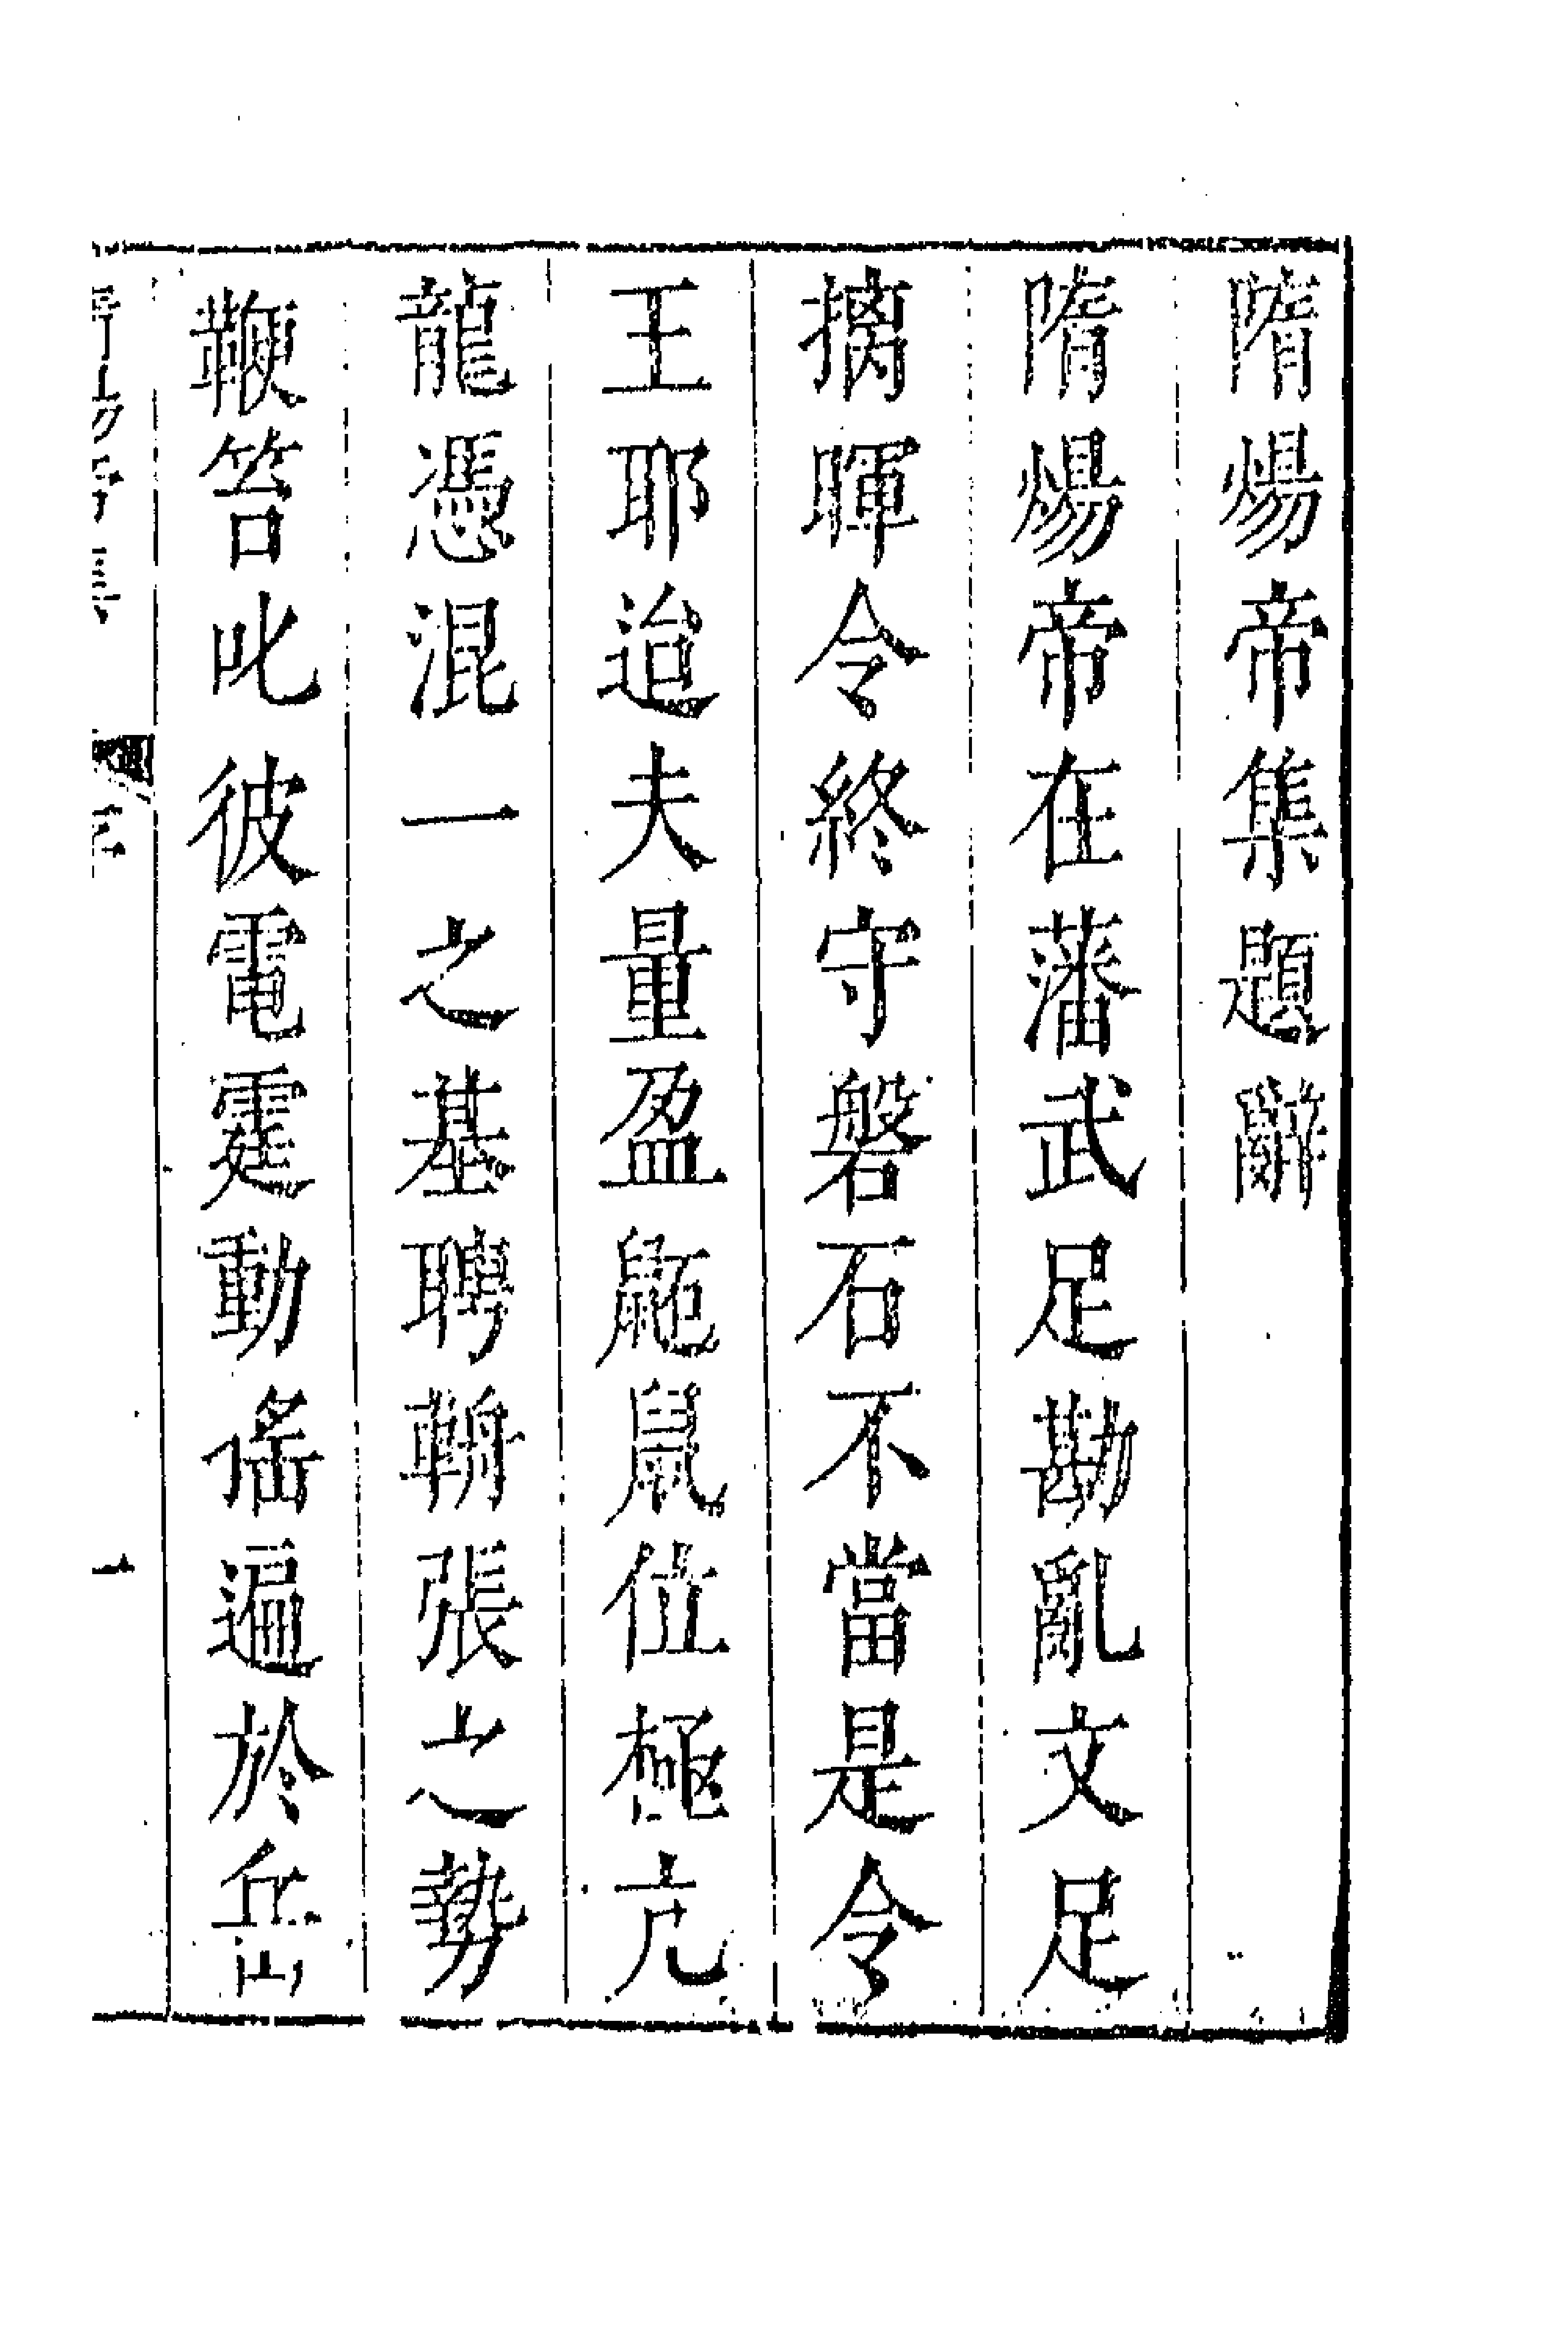 隋煬帝集題辭
隋煬帝在藩武足勘亂文足
摛暉令終守磐石不當是令
王耶迨夫量盈鼫鼠位極亢
龍憑混一之基聘鞹張之勢
鞭笞叱彼電霆動徭遍於岳